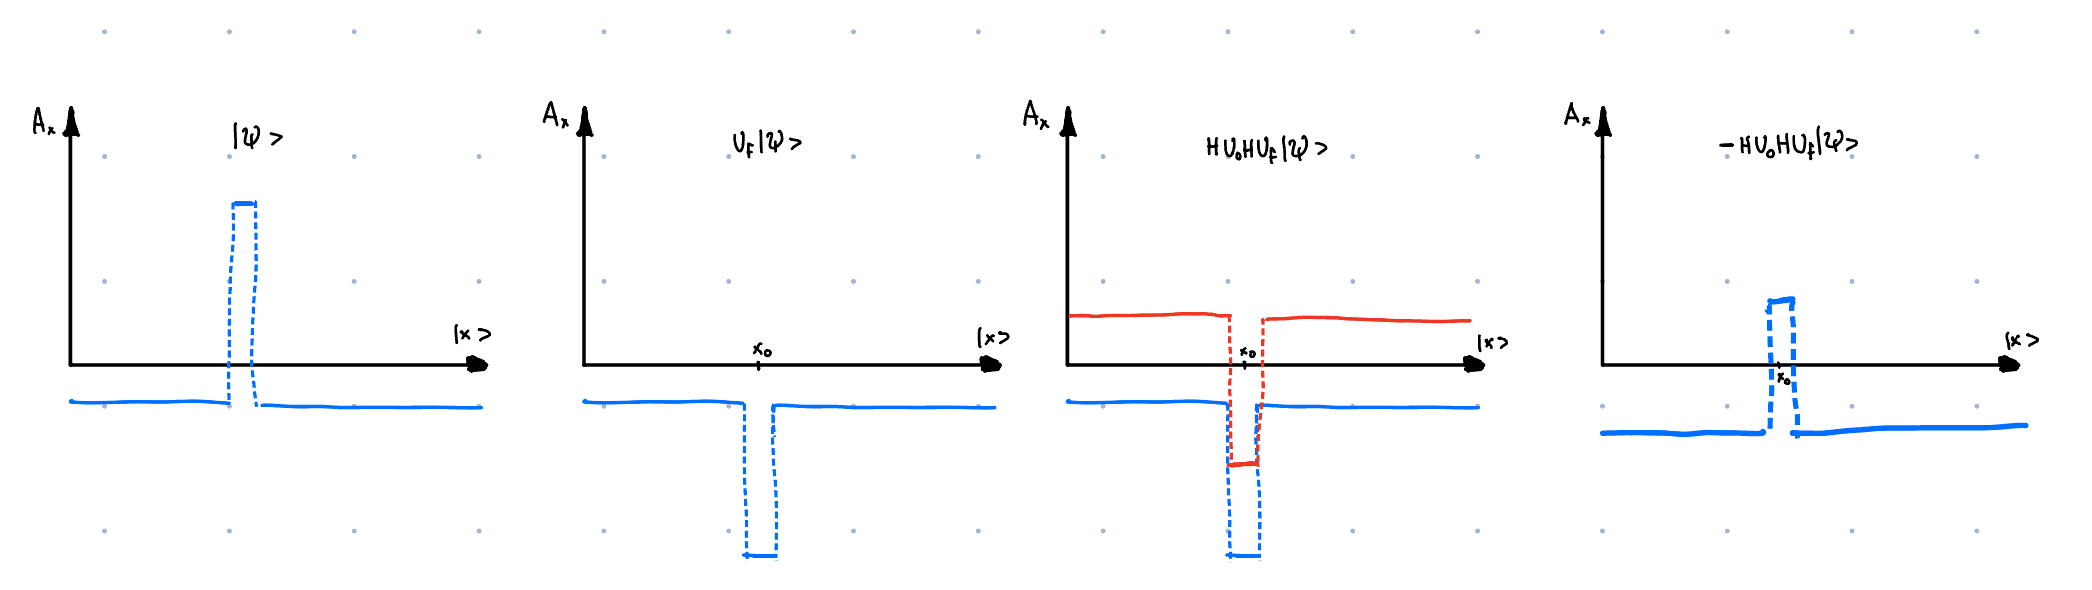 Aₓ
|ψ>
|x>
Aₓ
U_f|ψ>
x₀
|x>
Aₓ
HU₀HU_f|ψ>
x₀
|x>
Aₓ
-HU₀HU_f|ψ>
x₀
|x>